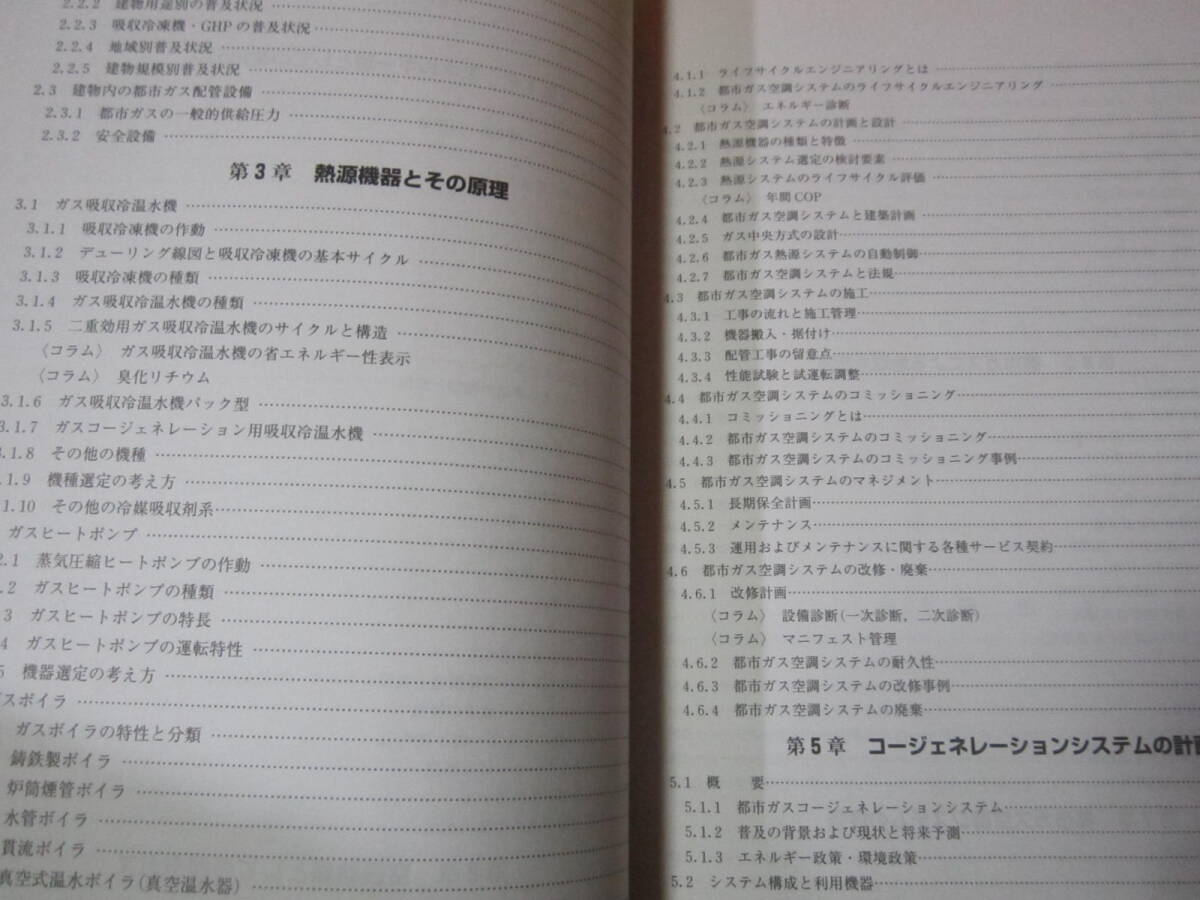 2.2.2 建物用途別の普及状況
2.2.3 吸収冷凍機・GHPの普及状況
2.2.4 地域別普及状況
2.2.5 建物規模別普及状況
2.3 建物内の都市ガス配管設備
2.3.1 都市ガスの一般的供給圧力
2.3.2 安全設備
第3章 熱源機器とその原理
3.1 ガス吸収冷温水機
3.1.1 吸収冷凍機の作動
3.1.2 デューリング線図と吸収冷凍機の基本サイクル
3.1.3 吸収冷凍機の種類
3.1.4 ガス吸収冷温水機の種類
3.1.5 二重効用ガス吸収冷温水機のサイクルと構造
〈コラム〉 ガス吸収冷温水機の省エネルギー性表示
〈コラム〉 臭化リチウム
3.1.6 ガス吸収冷温水機パック型
3.1.7 ガスコージェネレーション用吸収冷温水機
3.1.8 その他の機種
.1.9 機種選定の考え方
.1.10 その他の冷媒吸収剤系
ガスヒートポンプ
2.1 蒸気圧縮ヒートポンプの作動
.2 ガスヒートポンプの種類
3 ガスヒートポンプの特長
4 ガスヒートポンプの運転特性
5 機器選定の考え方
ガスボイラ
ガスボイラの特性と分類
鋳鉄製ボイラ
炉筒煙管ボイラ
水管ボイラ
貫流ボイラ
真空式温水ボイラ(真空温水器)
4.1.1 ライフサイクルエンジニアリングとは
4.1.2 都市ガス空調システムのライフサイクルエンジニアリング
〈コラム〉 エネルギー診断
4.2 都市ガス空調システムの計画と設計
4.2.1 熱源機器の種類と特徴
4.2.2 熱源システム選定の検討要素
4.2.3 熱源システムのライフサイクル評価
〈コラム〉 年間COP
4.2.4 都市ガス空調システムと建築計画
4.2.5 ガス中央方式の設計
4.2.6 都市ガス熱源システムの自動制御
4.2.7 都市ガス空調システムと法規
4.3 都市ガス空調システムの施工
4.3.1 工事の流れと施工管理
4.3.2 機器搬入・据付け
4.3.3 配管工事の留意点
4.3.4 性能試験と試運転調整
4.4 都市ガス空調システムのコミッショニング
4.4.1 コミッショニングとは
4.4.2 都市ガス空調システムのコミッショニング
4.4.3 都市ガス空調システムのコミッショニング事例
4.5 都市ガス空調システムのマネジメント
4.5.1 長期保全計画
4.5.2 メンテナンス
4.5.3 運用およびメンテナンスに関する各種サービス契約
4.6 都市ガス空調システムの改修・廃棄
4.6.1 改修計画
〈コラム〉 設備診断(一次診断，二次診断)
〈コラム〉 マニフェスト管理
4.6.2 都市ガス空調システムの耐久性
4.6.3 都市ガス空調システムの改修事例
4.6.4 都市ガス空調システムの廃棄
第5章 コージェネレーションシステムの計画
5.1 概 要
5.1.1 都市ガスコージェネレーションシステム
5.1.2 普及の背景および現状と将来予測
5.1.3 エネルギー政策・環境政策
5.2 システム構成と利用機器